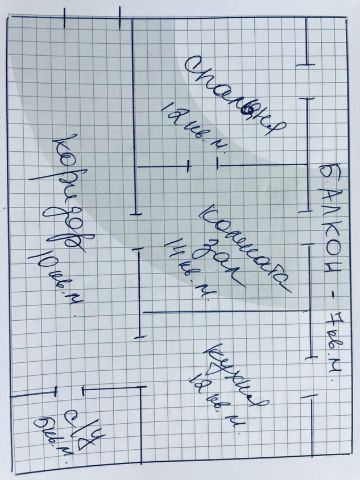 спальня
12 кв.м.
БАЛКОН - 7 кв.м.
коридор
10 кв.м.
комната
зал
14 кв.м.
кухня
12 кв.м.
с/у
6 кв.м.